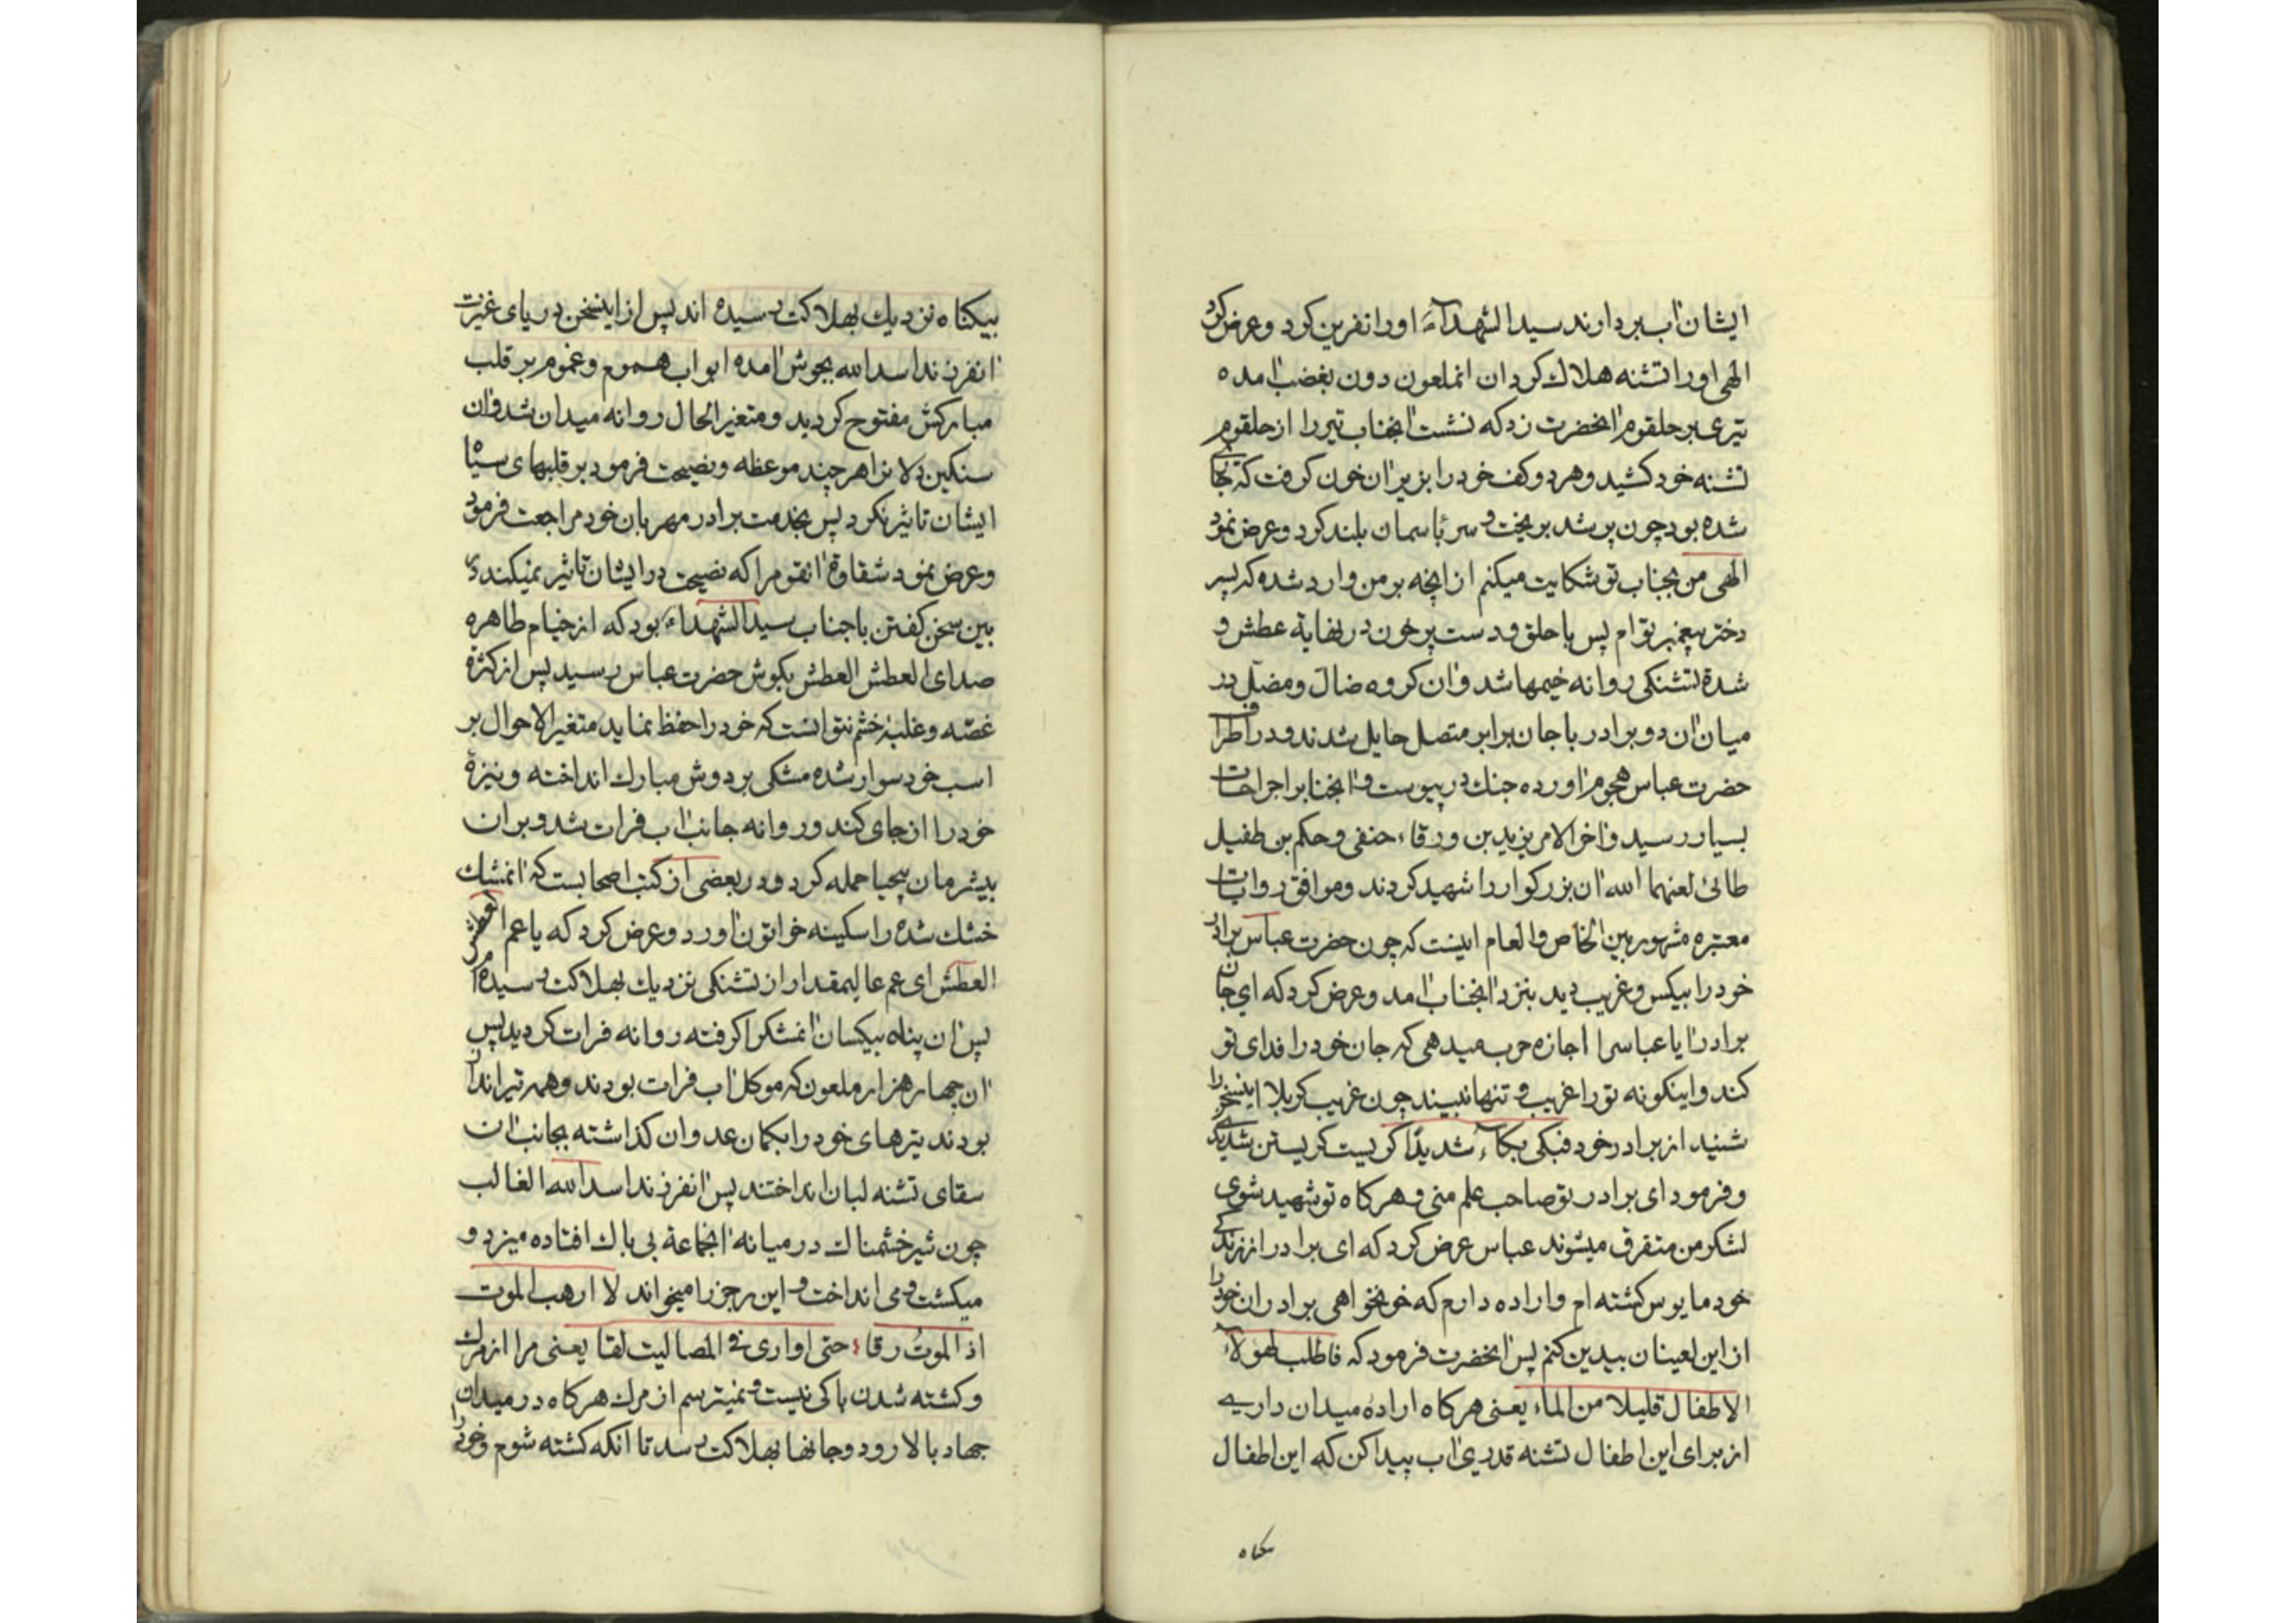 ایشان آب بردارند سید الشهدآء اورا نفرین کرد وعرض کرد
الهی اورا تشنه هلاك کردان انملعون دون بغضب آمده
تیری بر حلقوم آنحضرت زد که نشست آنجناب تیر را از حلقوم
تشنه خود کشید وهر دو کف خود را بزیر آن خون کرفت که جاری
شده بود چون پر شد بریخت و سر بآسمان بلند کرد وعرض نمود
الهی من بجناب تو شکایت میکنم از آنچه بر من وارد شده که پسر
دختر پیغمبر توام پس با حلق و دست پر خون در نهایة عطش و
شدة تشنکی روانه خیمها شد وآن کروه ضال ومضل در
میان آن دو برادر با جان برابر متصل حایل شدند ودر اطراف
حضرت عباس هجوم آورده جنك در پیوست و آنجنابرا جراحات
بسیار رسید وآخر الامر یزید بن ورقاء حنفی وحکم بن طفیل
طائی لعنهما الله آن بزرکوار را شهید کردند وموافق روایات
معتبره مشهوره بین الخاص والعام اینست که چون حضرت عباس برادر
خود را بیکس وغریب دید بنزد آنجناب آمد وعرض کرد که ای جان
برادر آیا عباسرا اجازه حرب میدهی که جان خود را فدای تو
کند واینکونه تو را غریب و تنها نبیند چون غریب کربلا اینسخن را
شنید از برادر خود فبکی بکآء شدیدًا کریست کریستن شدیدی
وفرمود ای برادر تو صاحب علم منی و هر کاه تو شهید شوی
لشکر من متفرق میشوند عباس عرض کرد که ای برادر از زندکی
خود مایوس کشته ام واراده دارم که خونخواهی برادران خود را
از این لعینان بیدین کنم پس آنحضرت فرمود که فاطلب لهولآء
الاطفال قلیلا من الماء یعنی هر کاه اراده میدان داریے
از برای این اطفال تشنه قدری آب پیدا کن که این اطفال
بیکناه نزدیك بهلاکت رسیده اند پس از اینسخن دریای غیرت
آنفرزند اسد الله بجوش آمده ابواب هموم وغموم بر قلب
مبارکش مفتوح کردید ومتغیر الحال روانه میدان شد وآن
سنکین دلانرا هر چند موعظه ونصیحت فرمود بر قلبهای سیاه
ایشان تاثیر نکرد پس بخدمت برادر مهربان خود مراجعت فرمود
وعرض نمود شقاوة آنقوم را که نصیحت در ایشان تاثیر نمیکند در
بین سخن کفتن با جناب سید الشهداء بود که از خیام طاهره
صدای العطش العطش بکوش حضرت عباس رسید پس از کثرة
غصّه وغلبهٔ خشم نتوانست که خود را حفظ نماید متغیر الاحوال بر
اسب خود سوار شده مشکی بر دوش مبارك انداخته ونیزهٔ
خود را از جای کند و روانه جانب آب فرات شد وبر ان
بیشرمان بیحیا حمله کرد ودر بعضی از کتب اصحابست که آنمشك
خشك شده را سکینه خواتون آورد وعرض کرد که یا عم العطش
العطش ای عم عالیمقدار از تشنکی نزدیك بهلاکت رسیده ام
پس آن پناه بیکسان آنمشکرا کرفته روانه فرات کردید پس
آن چهار هزار ملعون که موکل آب فرات بودند وهمه تیر انداز
بودند تیرهای خود را بکمان عدوان کذاشته بجانب آن
سقای تشنه لبان انداختند پس آنفرزند اسد الله الغالب
چون شیر خشمناك در میانه آنجماعة بی باك افتاده میزد و
میکشت و می انداخت و این رجز را میخواند لا ارهب الموت
اذ الموت رقا؛ حتی اواری فی المصالیت لقا یعنی مرا از مرك
وکشته شدن باکی نیست و نمیترسم از مرك هر کاه در میدان
جهاد بالا رود وجانها بهلاکت رسد تا آنکه کشته شوم وخود را
بیکناه